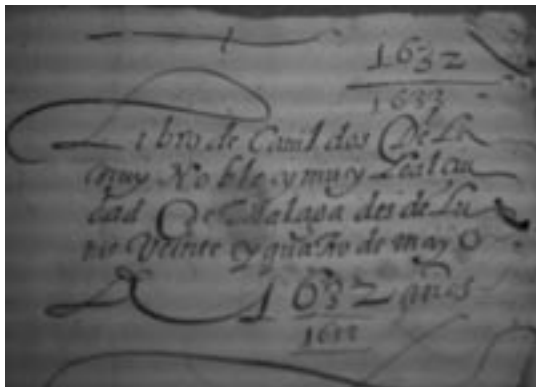 1632
1633
Libro de Cauildos De La
muy Noble y muy Leal ciu
dad De Malaga desde Lu
ne Veinte y quatro de mayo
1632 años